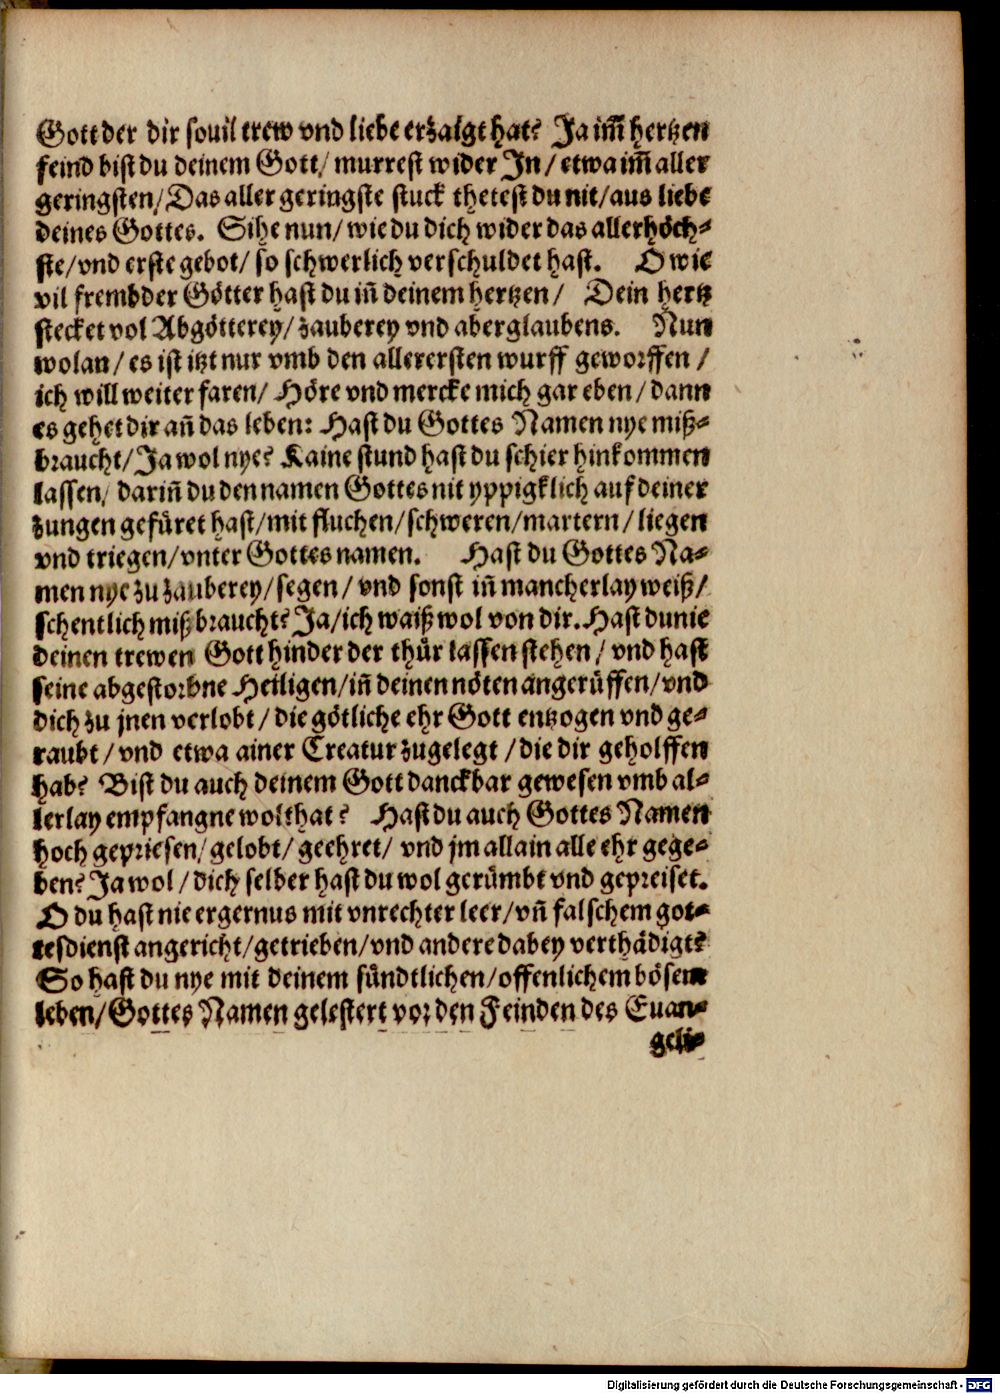 Gott der dir souil trew vnd liebe erzaigt hat? Ja im̃ hertzen
feind bist du deinem Gott/ murrest wider In/ etwa im̃ aller
geringsten/ Das aller geringste stuck thetest du nit/ aus liebe
deines Gottes. Sihe nun/ wie du dich wider das allerhöch-
ste/ vnd erste gebot/ so schwerlich verschuldet hast. O wie
vil frembder Götter hast du iñ deinem hertzen/ Dein hertz
stecket vol Abgötterey/ zauberey vnd aberglaubens. Nun
wolan/ es ist itzt nur vmb den allerersten wurff geworffen/
ich will weiter faren/ Höre vnd mercke mich gar eben/ dann
es gehet dir añ das leben: Hast du Gottes Namen nye miß-
braucht/ Ja wol nye? Kaine stund hast du schier hinkommen
lassen/ dariñ du den namen Gottes nit yppigklich auf deiner
zungen gefüret hast/ mit fluchen/ schweren/ martern/ liegen
vnd triegen/ vnter Gottes namen. Hast du Gottes Na-
men nye zu zauberey/ segen/ vnd sonst iñ mancherlay weiß/
schentlich miß braucht? Ja/ ich waiß wol von dir. Hast du nie
deinen trewen Gott hinder der thür lassen stehen/ vnd hast
seine abgestorbne Heiligen/ iñ deinen nöten angerüffen/ vnd
dich zu jnen verlobt/ die götliche ehr Gott entzogen vnd ge-
raubt/ vnd etwa ainer Creatur zugelegt/ die dir geholffen
hab? Bist du auch deinem Gott danckbar gewesen vmb al-
lerlay empfangne wolthat? Hast du auch Gottes Namen
hoch gepriesen/ gelobt/ geehret/ vnd jm allain alle ehr gege-
ben? Ja wol/ dich selber hast du wol gerümbt vnd gepreiset.
O du hast nie ergernus mit vnrechter leer/ vñ falschem got-
tesdienst angericht/ getrieben/ vnd andere dabey verthädigt?
So hast du nye mit deinem sündtlichen/ offenlichem bösem
leben/ Gottes Namen gelestert vor den Feinden des Euan-
geli-
Digitalisierung gefördert durch die Deutsche Forschungsgemeinschaft - DFG